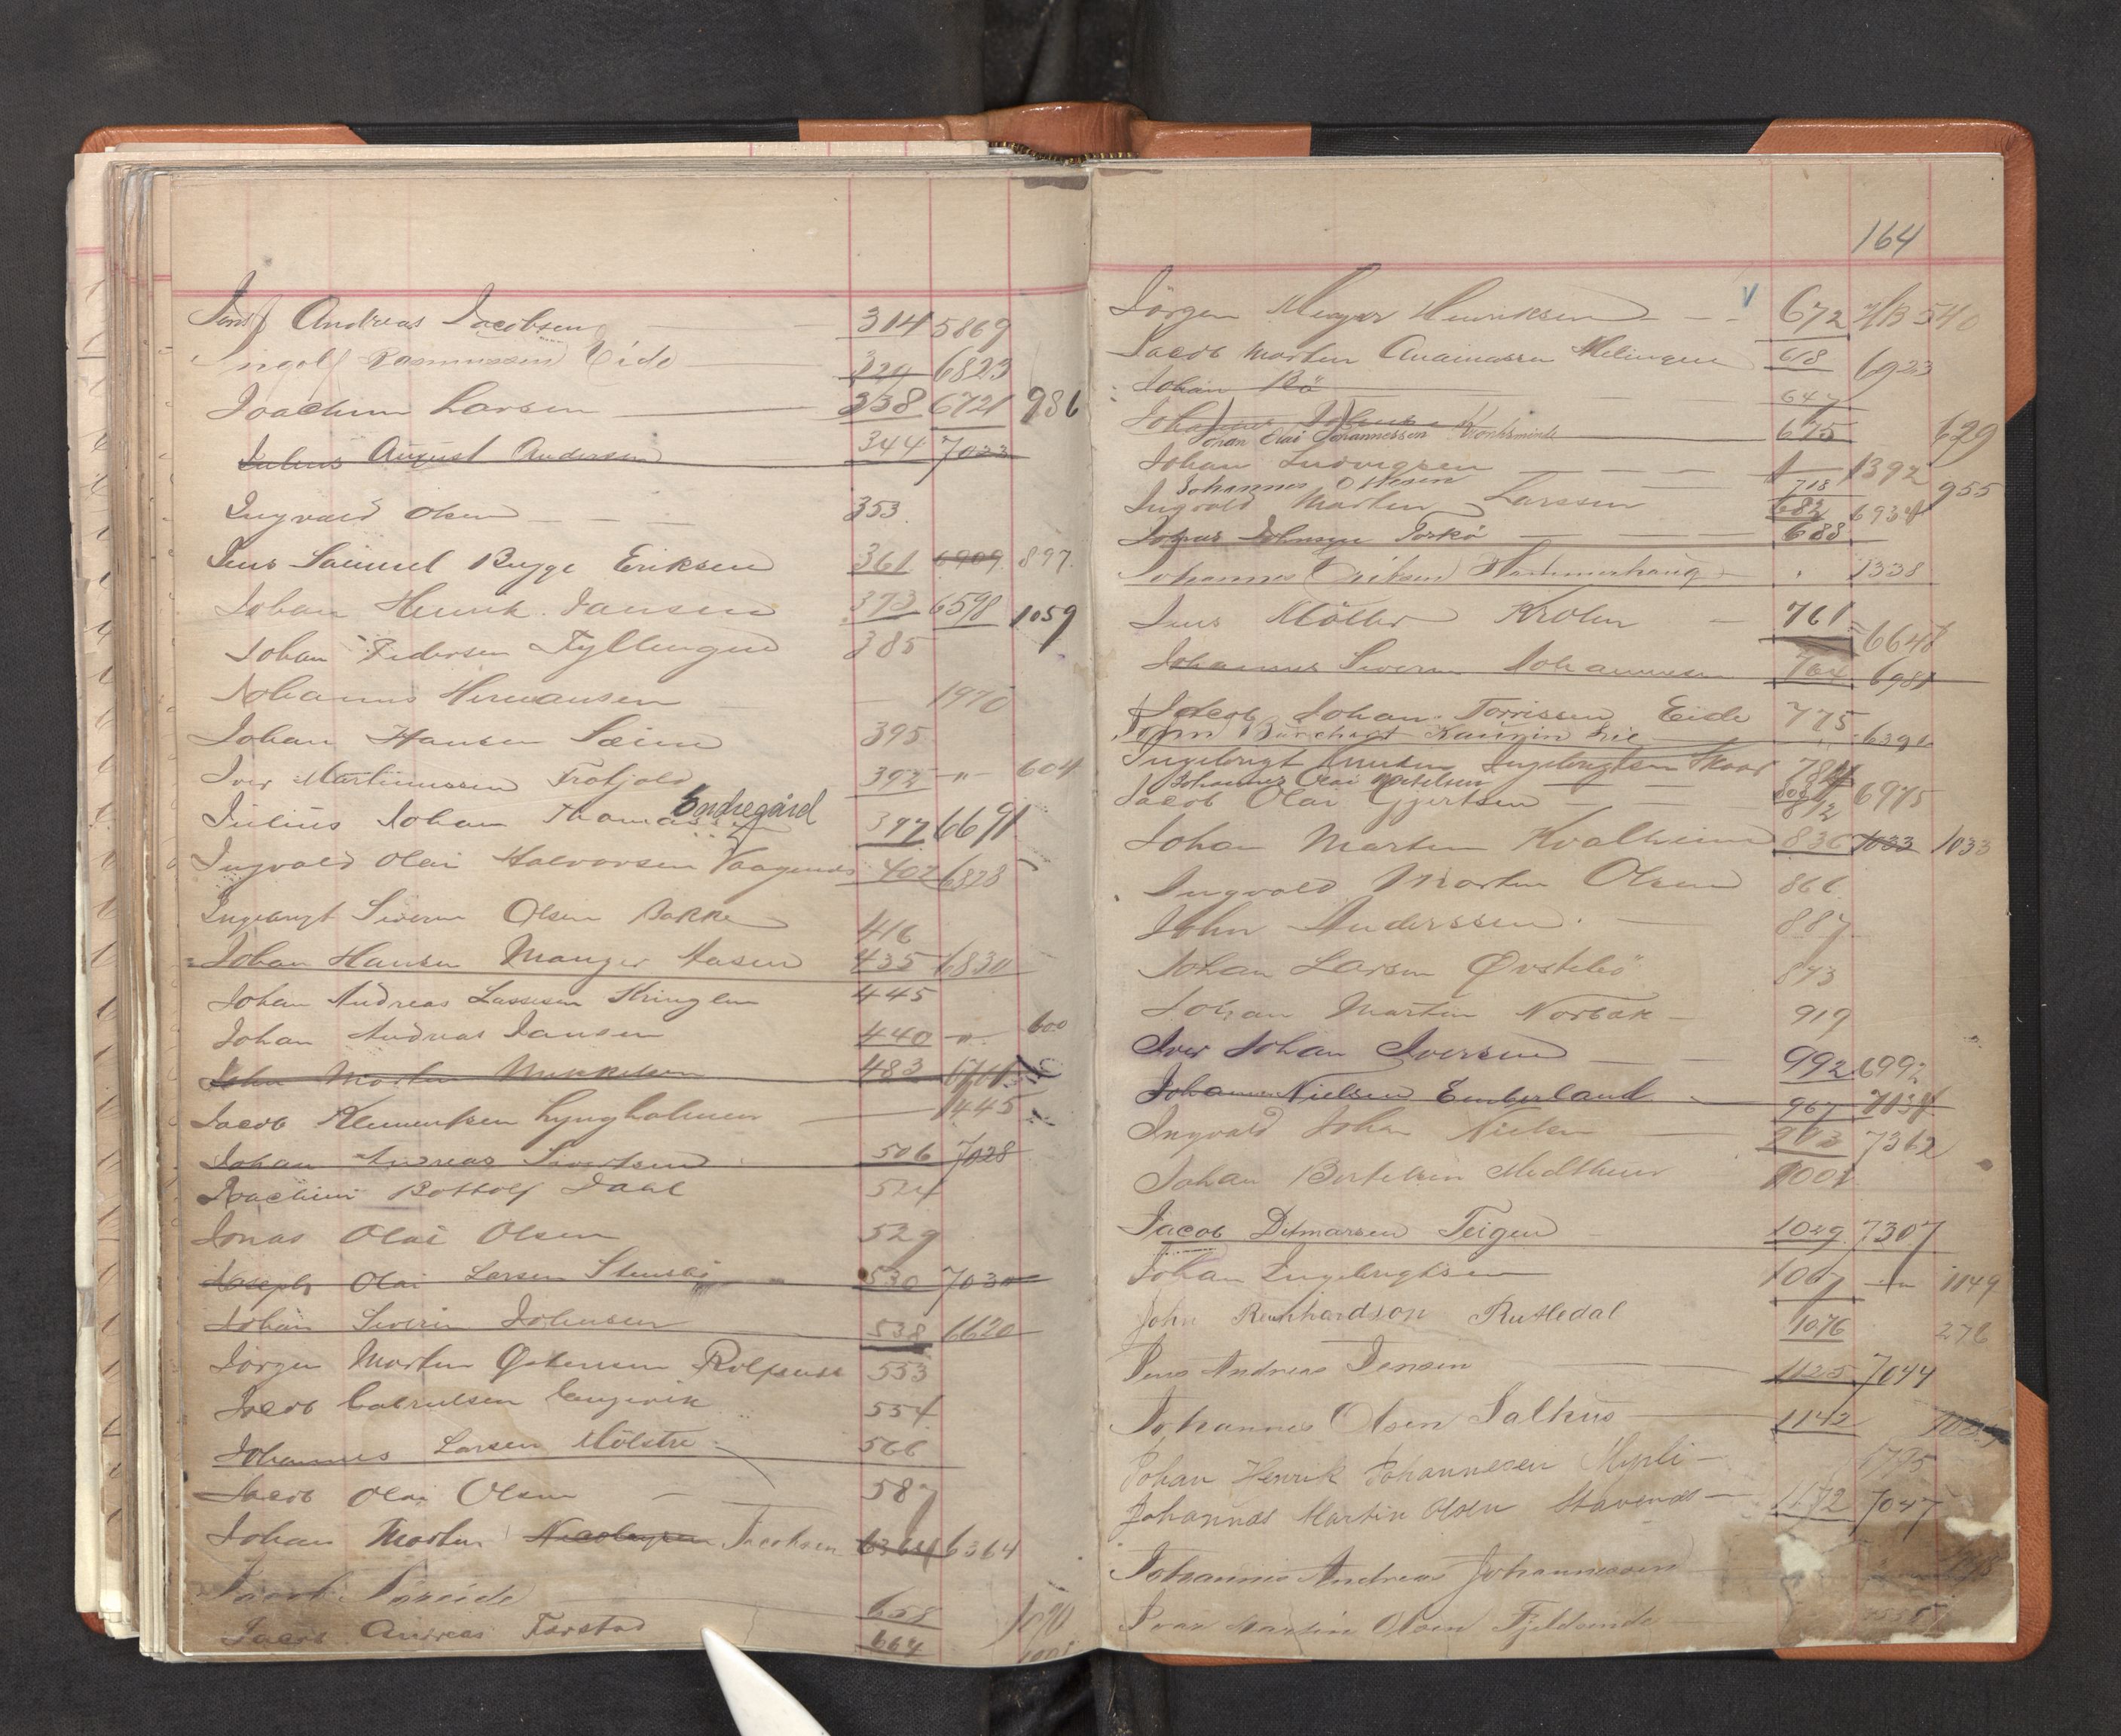 Jens Andreas Jacobsen 314 5869
Ingolf Rasmussen Eide 329 6823
Joachim Larsen 338 6721 986
Julius August Andersen 344 7033
Ingvald Olsen 353
Jens Samuel Bugge Eriksen 361 6909 897
Johan Henrik Jansen 373 6598 1059
Johan Pedersen Fyllingen 385
Johannes Hermansen 1970
Johan Hansen Sæim 395
Iver Martinussen 392 -"- 604
Julius Johan Thomassen Endregård 397 6691
Ingvald Olai Halvorsen Vaagenes 402 6828
Ingebrigt Severin Olsen Bakke 416
Johan Hansen Manger Aasen 435 6830
Johan Andreas Lassesen Kringlen 445
Johan Andreas Jansen 440 -"- 600
John Morten Mikkelsen 483
Jacob Klementsen Lyngholmen 1445
Johan Andreas Sivertsen 506 7028
Joachim Bottolf Dahl 524
Jonas Olai Olsen 529
Joseph Olai Larsen 530 7030
Johan Severin Johnsen 538 6620
Jørgen Morten Østensen 553
Jacob Gabrielsen 554
Johannes Larsen Mølstre 566
Jacob Olai Olsen 587
Johan Morten Nicolaysen Jacobsen 6364 6364
Søreide 658 1090
Jacob Andreas Farstad 664
164
Jørgen Meyer Henriksen 672 540
Jacob Morten Melingen 618 6923
Johan Bø 647
Johannes Johnsen
Johan Olai Johannessen 675 629
Johan Ludvigsen 1392
Johannes Ottesen 718 955
Ingvald Morten Larssen 682 6934
Johnsen Torkø 688
Johannes Eriksen Hammerhaug 1338
Jens Møller Krohn 761 6648
Johannes Severin Johannessen 764 6981
Jacob Johan Torrissen Eide 775
John 6391
Ingebrigt Knutsen Ingebrigtsen Skaar 784
Johannes Olai
Jacob Olai Gjertsen 812 6975
Johan Martin Kvalheim 836 1033 1033
Ingvald Morten Olsen 866
John Anderssen 887
Johan Larsen Østebø 893
Johan Martin Norbak 919
Iver Johan Iversen 992 6992
Johannes Nielsen Emberland 967 7038
Ingvald Johan Nielsen 7362
Johan Bertelsen Midtheim 1001
Jacob Ditmarsen Teigen 1029 7307
Johan Ingebrigtsen 1067 -"- 1149
John Reinhardson Rutledal 1076 276
Jens Andreas Jensen 1125 7044
Johannes Olsen Salhus 1142
Johan Henrik Johannesen Myrli 1795
Johannes Martin Olsen Stavenes 1172 7047
Johannes Andreas Johannessen
Ivar Martin Olsen